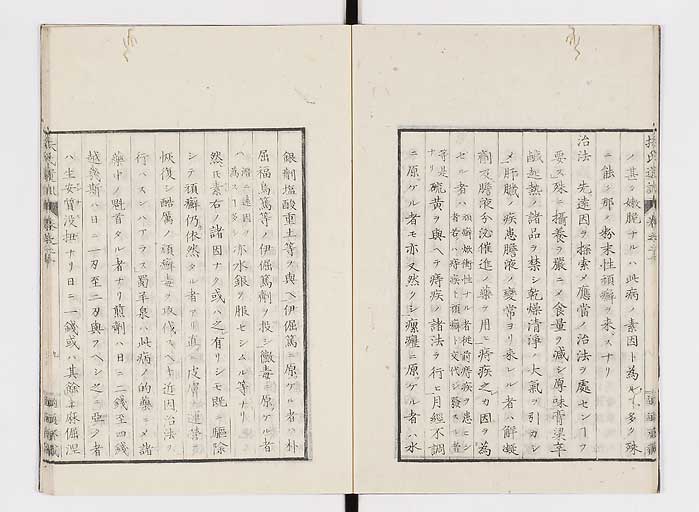 ノ甚タ嫩脆ナルハ此病ノ素因ト為ル多ク殊
ニ能ク那ノ粉末性頑癬ヲ来スナリ
治法 先遠因ヲ探索メ應當ノ治法ヲ處センヿヲ
要ス殊ニ攝養ヲ嚴ニメ食量ヲ減シ厚味膏粱辛
鹹起熱ノ諸品ヲ禁シ乾燥清淨ノ大氣ヲ引カシ
メ肝臓ノ疾患膽液ノ変常ヨリ来レル者ハ解凝
劑及膽液分泌催進ノ藥ヲ用ヒ痔疾之カ因ヲ為
セル者ハ
頑癬焮衝性ナル者従前痔疾ヲ患ヒシ
者若ハ痔疾ト頑癬ト交代シ發スル者
等是
ナリ
硫黄ヲ與ヘ痔疾ノ諸法ヲ行ヒ月經不調
ニ原ケル者モ亦又然クシ瘰癧ニ原ケル者ハ水
銀劑塩酸重土等ヲ與ヘ伊倔篤ニ原ケル者ハ朴
屈福烏篤等ノ伊倔篤劑ヲ投シ黴毒ニ原ケル者
ハ
水銀ヲ服セシムル等ナリ
然𪜈素右ノ諸因ナク或ハ之有リシモ既ニ驅除
シテ頑癬仍依然タル者アリ直ニ皮膚ノ運營ヲ
恢復シ酷篤ノ頑癬毒ヲ攻伐スヘキ近因治法ヲ
行ハスンハアラス蜀羊泉ハ此病ノ的藥ニメ諸
藥中ノ魁首タル者ナリ煎劑ハ日ニ二錢至四錢
越幾斯ハ日ニ一刃至二刃與フヘシ之ニ亞ク者
ハ生安質没扭ナリ日ニ一錢或ハ其餘ヲ麻倔涅